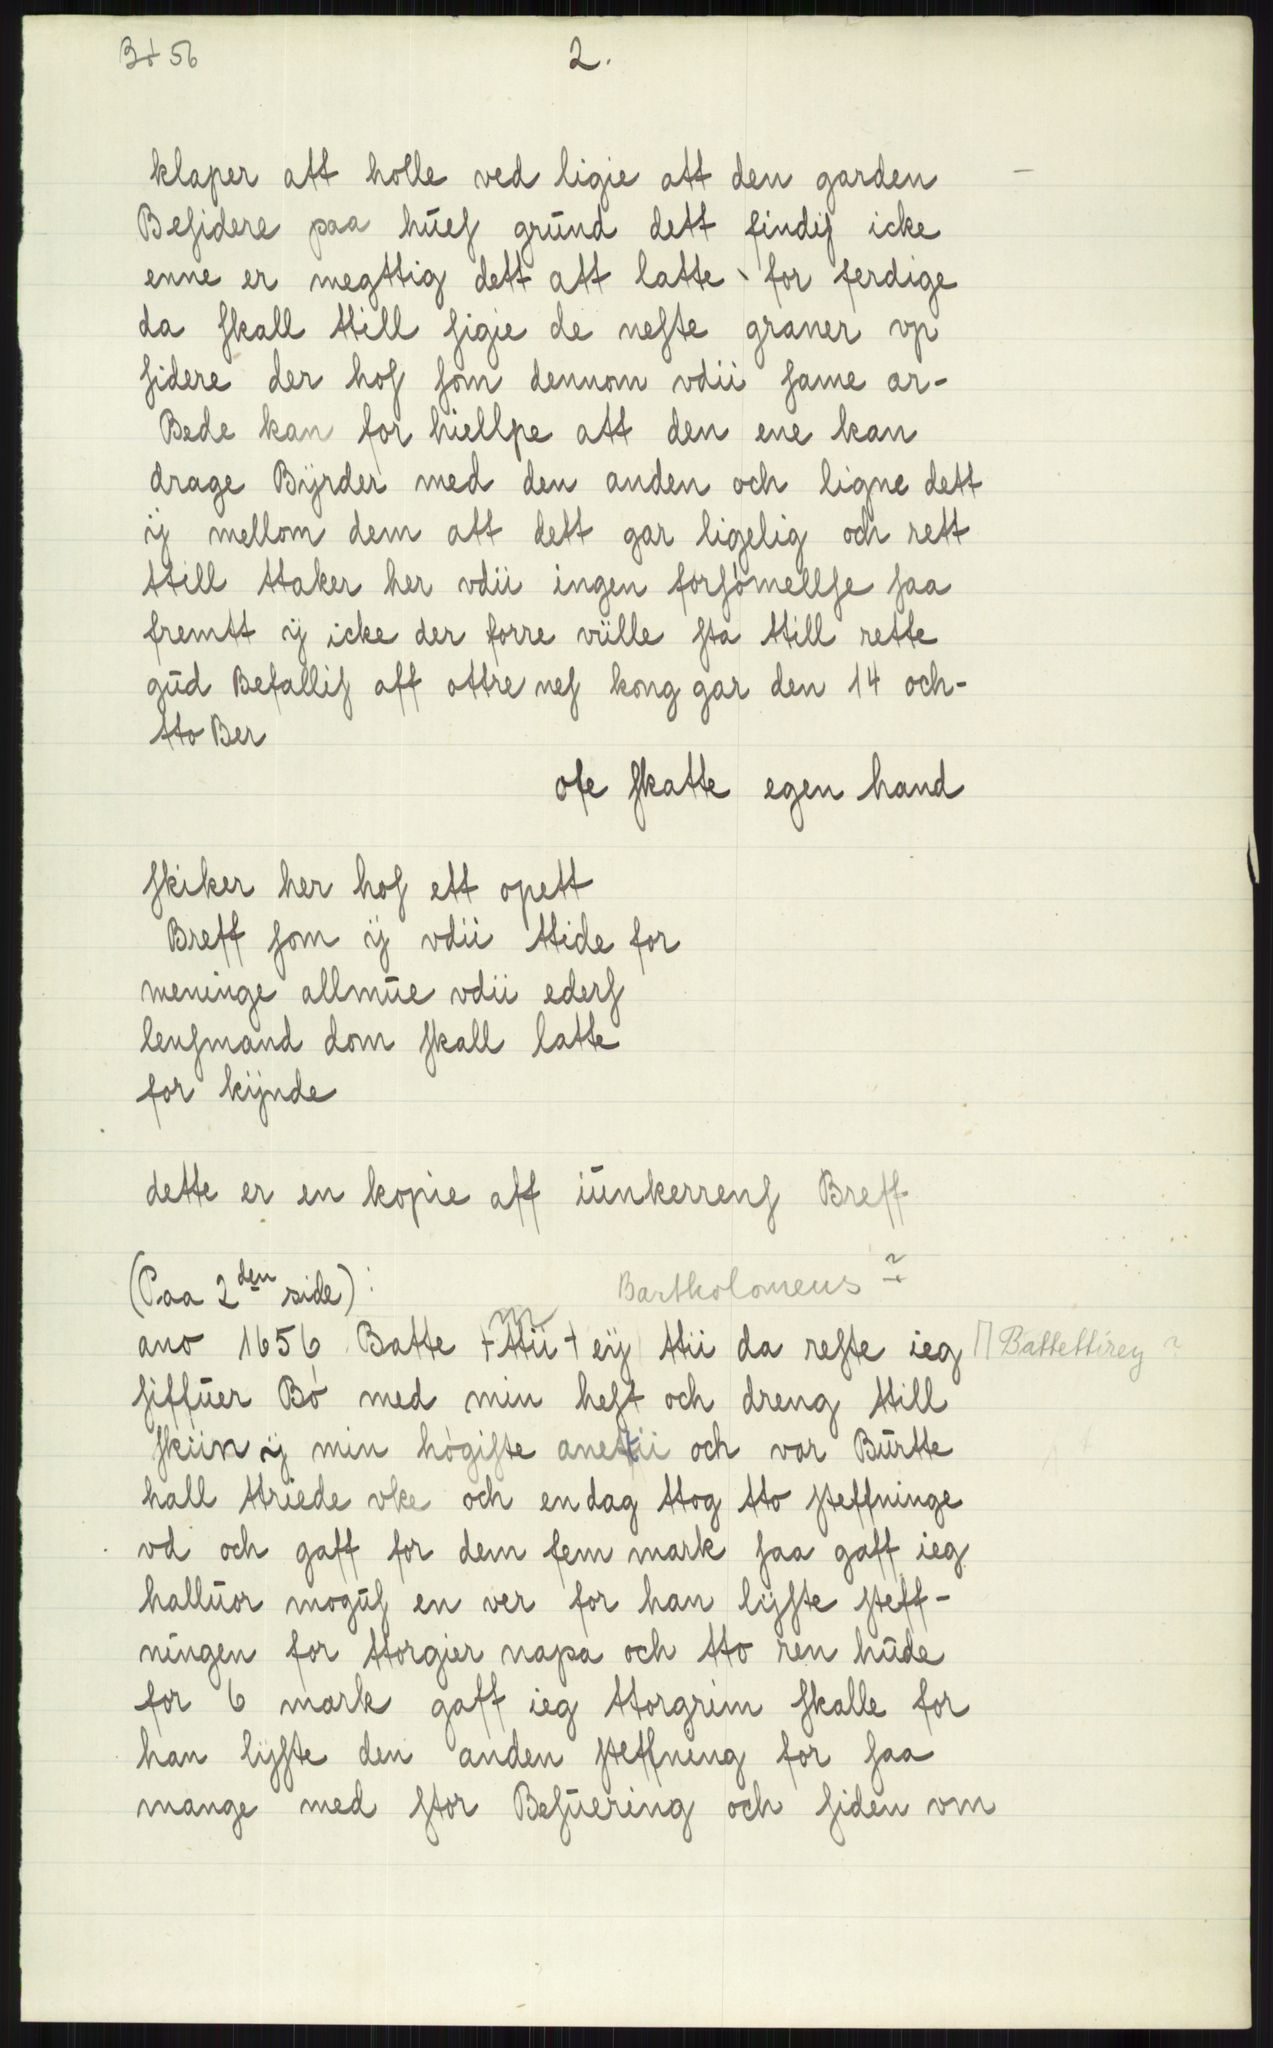 3+56
2.
klaper att holle ved ligie att den garden
Beſidere paa hūeſ grūnd dett findiſ icke
enne er megttig dett att latte for ferdige
da ſkall ttill ſigie de neſte graner vp
ſidere der hoſ ſom dennom vdii ſame ar-
Bede kan for hiellpe att den ene kan
drage Bÿrder med den anden och ligne dett
ÿ mellom dem att dett gar ligelig och rett
ttill ttaker her vdii ingen forſòmellſe ſaa
fremtt ÿ icke der forre vülle ſta ttill rette
gūd Befalliſ aff ottre neſ kong gar den 14 och-
tto Ber
ofe ſkatte egen hand
ſkiker her hoſ ett opett
Breff ſom ÿ vdii ttide for
meninge allmūe vdii ederſ
lenſmand dom ſkall latte
for kÿnde
dette er en kopie aff iūnkerrenſ Breff
(Paa 2den side):
Bartholomeus ?
m
ano 1656 Batte + ttii + eÿ ttii da reſte ieg ∏ Battettirey ?
ſiffūer Bò med min heſt och dreng ttill
ſkiin ÿ min hògiſte anettii och var Būrtte
hall ttriede vke och en dag ttog tto ſteffninge
vd och gaff for dem fem mark ſaa gaff ieg
hallūor mogūſ en ver for han lÿſte ſteff-
ningen for ttorgier napa och tto ren hūde
for 6 mark gaff ieg ttorgrim ſkalle for
han lÿſte den anden ſteffning for ſaa
mange med ſtor Beſūering och ſiden vm